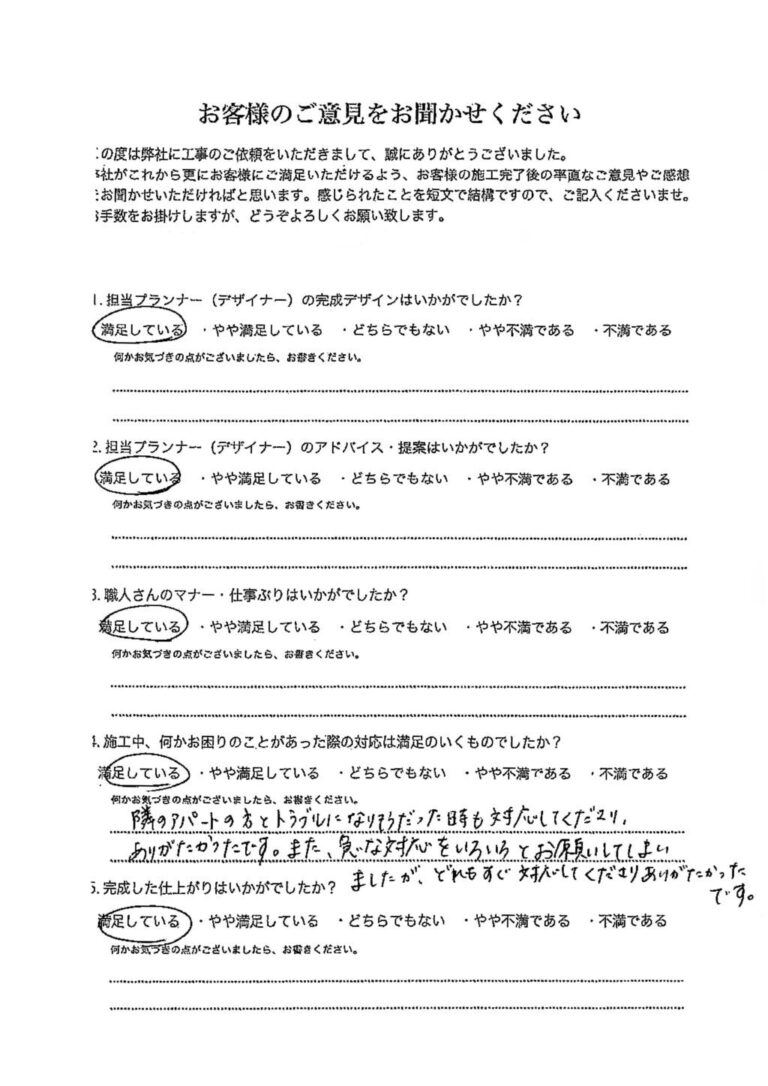 お客様のご意見をお聞かせください
の度は弊社に工事のご依頼をいただきまして、誠にありがとうございました。
社がこれから更にお客様にご満足いただけるよう、お客様の施工完了後の率直なご意見やご感想
お聞かせいただければと思います。感じられたことを短文で結構ですので、ご記入くださいませ。
手数をお掛けしますが、どうぞよろしくお願い致します。
1. 担当プランナー（デザイナー）の完成デザインはいかがでしたか？
満足している ・やや満足している ・どちらでもない ・やや不満である ・不満である
何かお気づきの点がございましたら、お書きください。
2. 担当プランナー（デザイナー）のアドバイス・提案はいかがでしたか？
満足している ・やや満足している ・どちらでもない ・やや不満である ・不満である
何かお気づきの点がございましたら、お書きください。
3. 職人さんのマナー・仕事ぶりはいかがでしたか？
満足している ・やや満足している ・どちらでもない ・やや不満である ・不満である
何かお気づきの点がございましたら、お書きください。
4. 施工中、何かお困りのことがあった際の対応は満足のいくものでしたか？
満足している ・やや満足している ・どちらでもない ・やや不満である ・不満である
何かお気づきの点がございましたら、お書きください。
隣のアパートの方とトラブルになりそうだった時も対応してくださり、
ありがたかったです。また、急な対応をいろいろとお願いしてしまい
ましたが、どれもすぐ対応してくださりありがたかった
です。
5. 完成した仕上がりはいかがでしたか？
満足している ・やや満足している ・どちらでもない ・やや不満である ・不満である
何かお気づきの点がございましたら、お書きください。